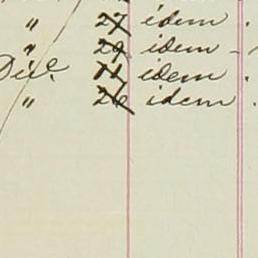 " 27 idem .
" 29 idem -
Dic. 11 idem .
" 26 idem .